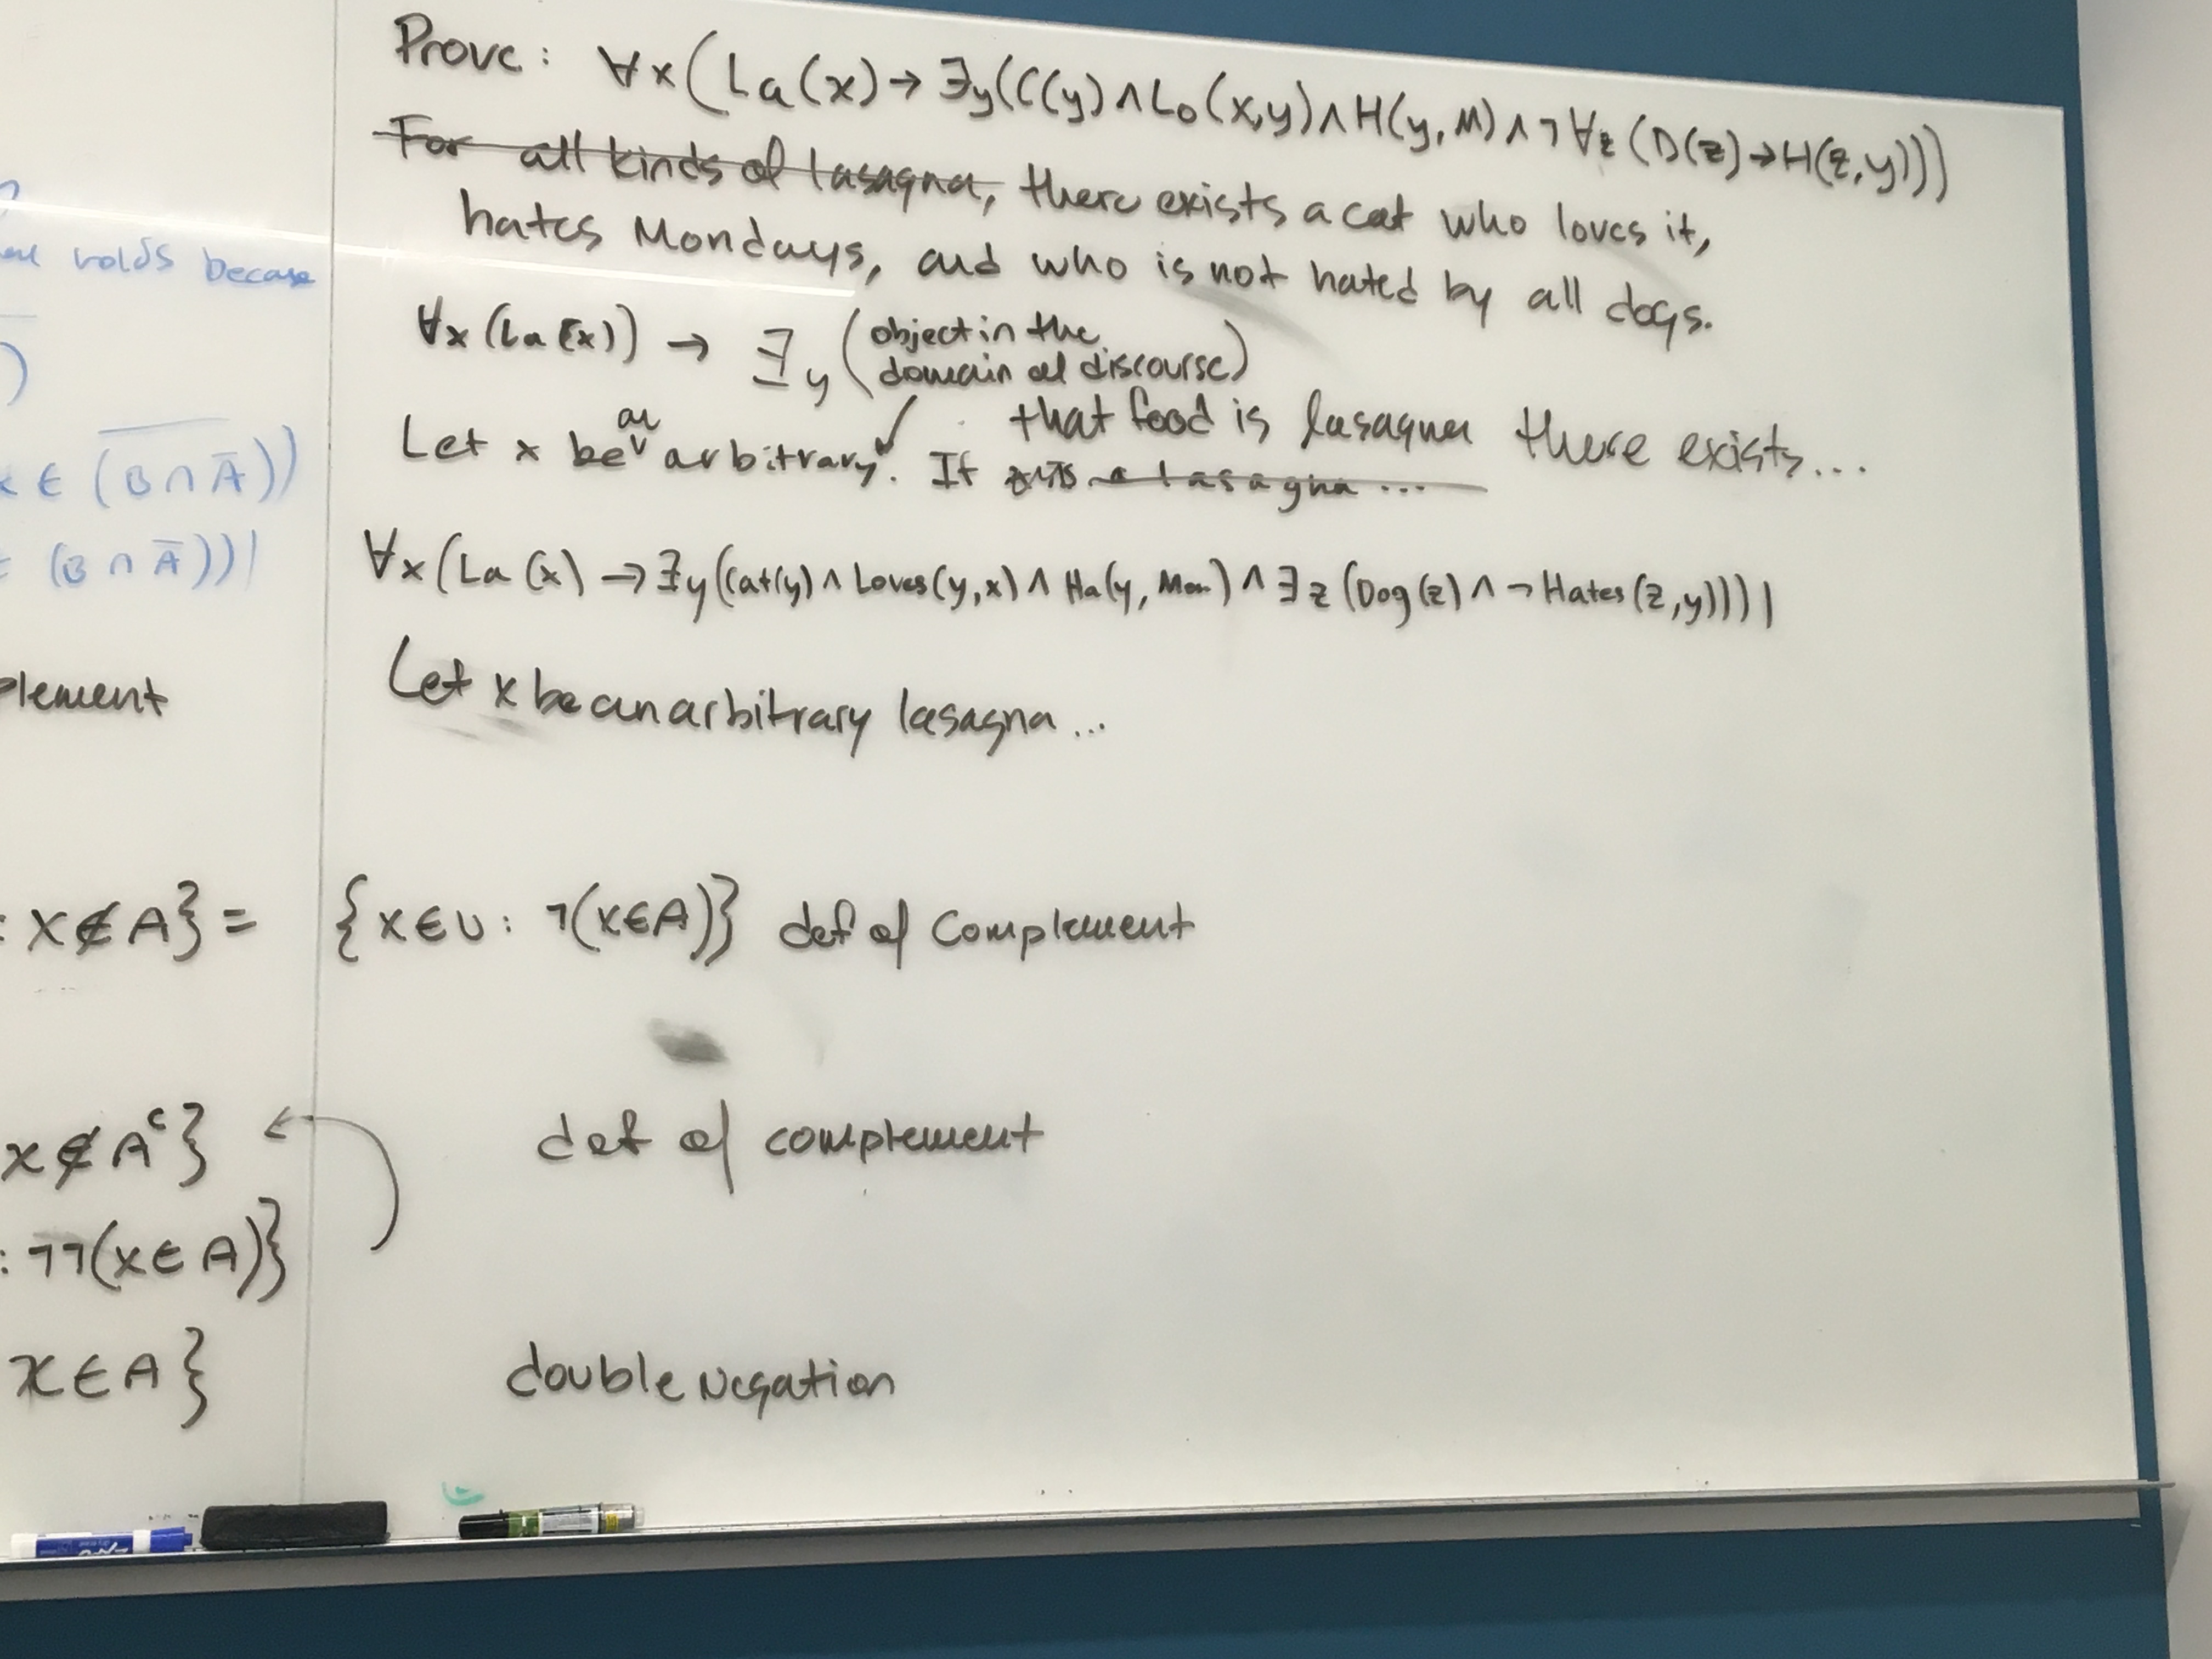 Prove: ∀x(La(x)→∃y(C(y)∧Lo(x,y)∧H(y,M)∧¬∀z(D(z)→H(z,y))))
For all kinds of lasagna, there exists a cat who loves it,
hates Mondays, and who is not hated by all dogs.
∀x(La(x)) → ∃y (object in the
domain of discourse)
Let x be an arbitrary. If x is a lasagna ...
that food is lasagna there exists...
∀x(La(x) → ∃y(Cat(y) ∧ Loves(y,x) ∧ Ha(y, Mon) ∧ ∃z (Dog(z) ∧ ¬Hates(z,y))))|
Let x be an arbitrary lasagna ...
holds because
)
x ∈ (B∩A̅))
∈ (B∩A̅)))|
plement
: x∉A} = {x∈U: ¬(x∈A)} def of Complement
x∉Aᶜ} ← def of complement
: ¬¬(x∈A)}
x∈A} double Negation